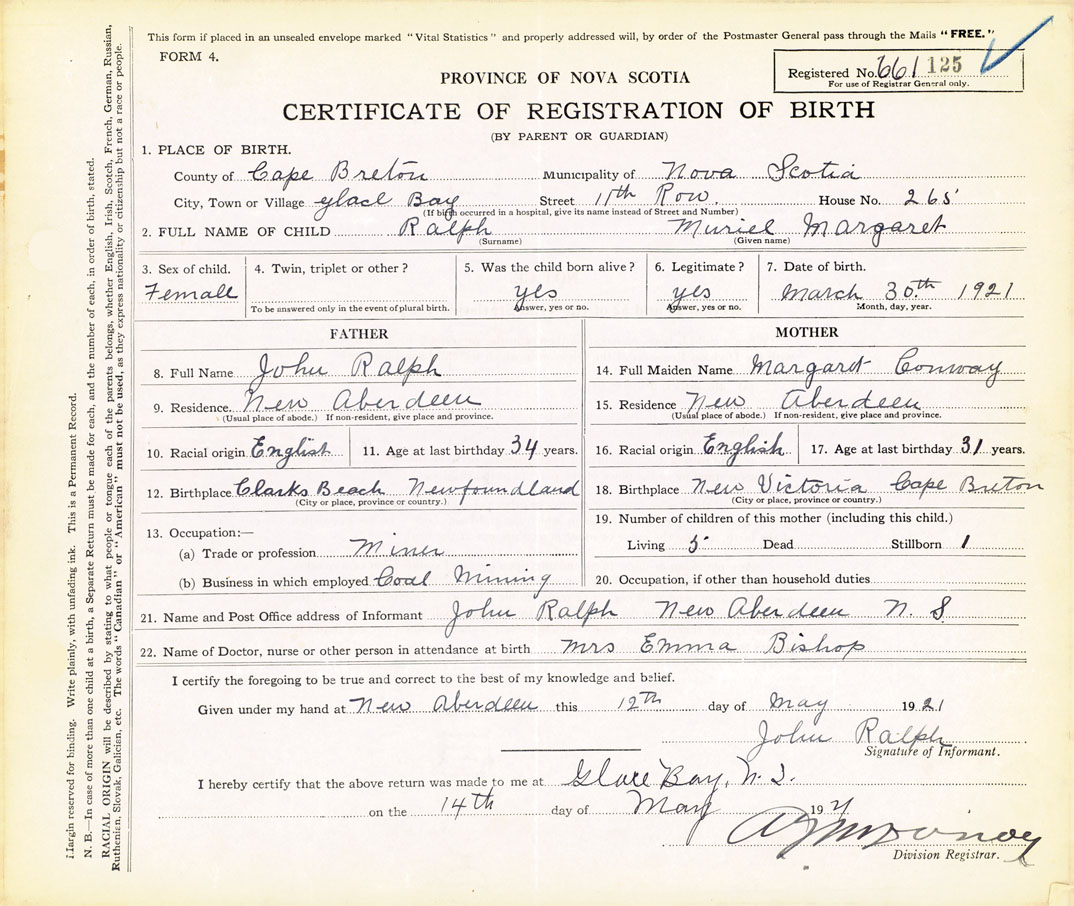 This form if placed in an unsealed envelope marked "Vital Statistics" and properly addressed will, by order of the Postmaster General pass through the Mails "FREE."
FORM 4.
Registered No. 661 125
For use of Registrar General only.
PROVINCE OF NOVA SCOTIA
CERTIFICATE OF REGISTRATION OF BIRTH
(BY PARENT OR GUARDIAN)
1. PLACE OF BIRTH.
County of Cape Breton Municipality of Nova Scotia
City, Town or Village Glace Bay Street 11th Row. House No. 265
(If birth occurred in a hospital, give its name instead of Street and Number)
2. FULL NAME OF CHILD Ralph Muriel Margaret
(Surname) (Given name)
3. Sex of child. 4. Twin, triplet or other? 5. Was the child born alive? 6. Legitimate? 7. Date of birth.
Female yes yes March 30th 1921
To be answered only in the event of plural birth. Answer, yes or no. Answer, yes or no. Month, day, year.
FATHER
8. Full Name John Ralph
9. Residence. New Aberdeen
(Usual place of abode.) If non-resident, give place and province.
10. Racial origin English 11. Age at last birthday 34 years.
12. Birthplace Clarks Beach Newfoundland
(City or place, province or country.)
13. Occupation:—
(a) Trade or profession Miner
(b) Business in which employed Coal Mining
MOTHER
14. Full Maiden Name Margaret Conway
15. Residence New Aberdeen
(Usual place of abode.) If non-resident, give place and province.
16. Racial origin English 17. Age at last birthday 31 years.
18. Birthplace New Victoria Cape Breton
(City or place, province or country.)
19. Number of children of this mother (including this child.)
Living 5 Dead Stillborn 1
20. Occupation, if other than household duties
21. Name and Post Office address of Informant John Ralph New Aberdeen N. S
22. Name of Doctor, nurse or other person in attendance at birth Mrs Emma Bishop
I certify the foregoing to be true and correct to the best of my knowledge and belief.
Given under my hand at New Aberdeen this 12th day of May 1921
John Ralph
Signature of Informant.
I hereby certify that the above return was made to me at Glace Bay, N. S.
on the 14th day of May 1921
Division Registrar.
Margin reserved for binding. Write plainly, with unfading ink. This is a Permanent Record.
N. B.—In case of more than one child at a birth, a Separate Return must be made for each, and the number of each, in order of birth, stated.
RACIAL ORIGIN will be described by stating to what people or tongue each of the parents belongs, whether English, Irish, Scotch, French, German, Russian,
Ruthenian, Slovak, Galician, etc. The words "Canadian" or "American" must not be used, as they express nationality or citizenship but not a race or people.